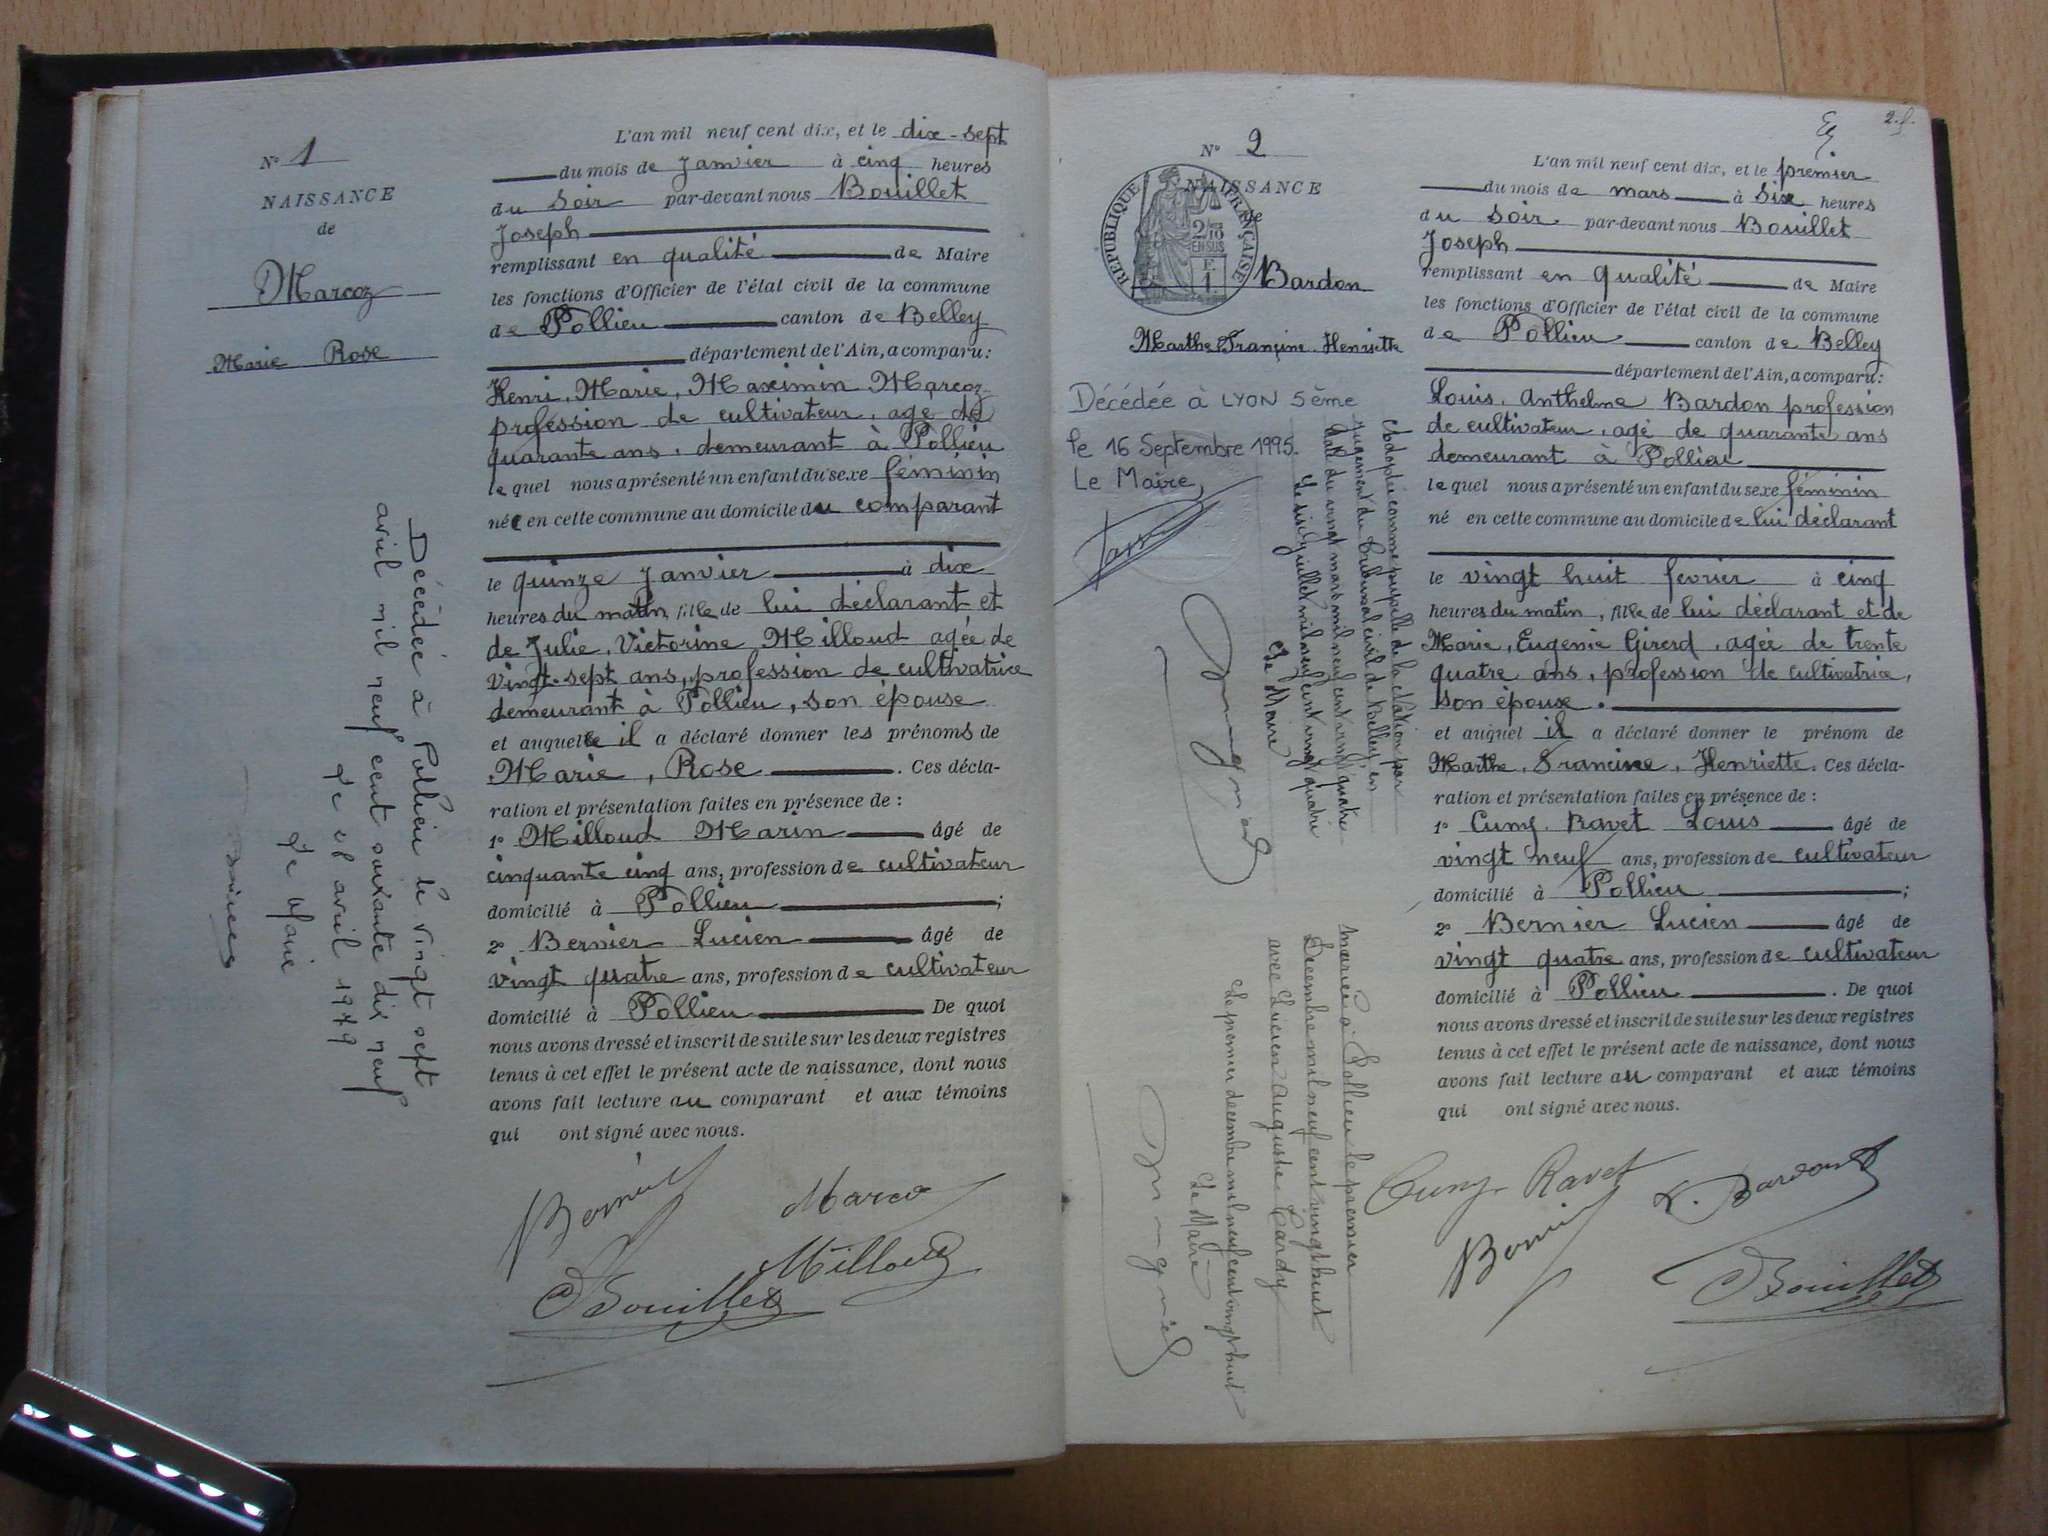 N° 1
NAISSANCE
de
Marcoz
Marie Rose
Décédée à Pollieu le vingt sept
avril mil neuf cent soixante dix neuf
Le 28 avril 1979
Le Maire
L'an mil neuf cent dix, et le dix-sept
du mois de Janvier à cinq heures
du soir par-devant nous Bouillet
Joseph
remplissant en qualité de Maire
les fonctions d'Officier de l'état civil de la commune
de Pollieu canton de Belley
département de l'Ain, a comparu:
Henri, Marie, Maximin Marcoz
profession de cultivateur, agé de
quarante ans, demeurant à Pollieu
le quel nous a présenté un enfant du sexe féminin
née en cette commune au domicile du comparant
le quinze Janvier à dix
heures du matin, fille de lui déclarant et
de Julie, Victorine Milloud agée de
vingt-sept ans, profession de cultivatrice
demeurant à Pollieu, son épouse
et auquelle il a déclaré donner les prénoms de
Marie, Rose. Ces décla-
ration et présentation faites en présence de :
1° Milloud Marin âgé de
cinquante cinq ans, profession de cultivateur
domicilié à Pollieu ;
2° Bernier Lucien âgé de
vingt quatre ans, profession de cultivateur
domicilié à Pollieu De quoi
nous avons dressé et inscrit de suite sur les deux registres
tenus à cet effet le présent acte de naissance, dont nous
avons fait lecture au comparant et aux témoins
qui ont signé avec nous.
Bernier Marcoz
Bouillet Milloud
2.f.
N° 2
NAISSANCE
de
RÉPUBLIQUE FRANÇAISE
2/10
EN SUS
F.
1.
Bardon
Marthe Françine Henriette
Décédée à LYON 5ème
le 16 Septembre 1995.
Le Maire,
Adoptée comme pupille de la Nation par
jugement du tribunal civil de Belley en
date du vingt mars mil neuf cent vingt quatre
Le dix juillet mil neuf cent vingt quatre
Le Maire
mariée à Pollieu le premier
Décembre mil neuf cent vingt huit
avec Lucien Auguste Cardy
Le premier décembre mil neuf cent vingt huit
Le Maire
L'an mil neuf cent dix, et le premier
du mois de mars à six heures
du soir par-devant nous Bouillet
Joseph
remplissant en qualité de Maire
les fonctions d'Officier de l'état civil de la commune
de Pollieu canton de Belley
département de l'Ain, a comparu:
Louis, Anthelme Bardon profession
de cultivateur, agé de quarante ans
demeurant à Pollieu
le quel nous a présenté un enfant du sexe féminin
né en cette commune au domicile de lui déclarant
le vingt huit fevrier à cinq
heures du matin, fille de lui déclarant et de
Marie, Eugenie Girerd, agée de trente
quatre ans, profession de cultivatrice,
son épouse.
et auquel il a déclaré donner le prénom de
Marthe, Francine, Henriette. Ces décla-
ration et présentation faites en présence de :
1° Cuny-Ravet Louis âgé de
vingt neuf ans, profession de cultivateur
domicilié à Pollieu ;
2° Bernier Lucien âgé de
vingt quatre ans, profession de cultivateur
domicilié à Pollieu. De quoi
nous avons dressé et inscrit de suite sur les deux registres
tenus à cet effet le présent acte de naissance, dont nous
avons fait lecture au comparant et aux témoins
qui ont signé avec nous.
Cuny-Ravet L. Bardon
Bernier Bouillet